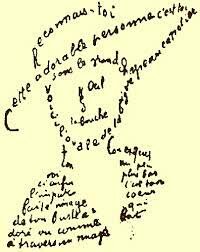 Reconnais-toi
Cette adorable personne c'est toi
Sous le grand chapeau canotier
Œil
la bouche
Voici l'ovale de ta figure
Ton
Cou exquis
Voici enfin
l'impar
faite image
de ton buste a
doré vu comme
à travers un nuage
un peu
plus bas
c'est ton
coeur
qui
bat